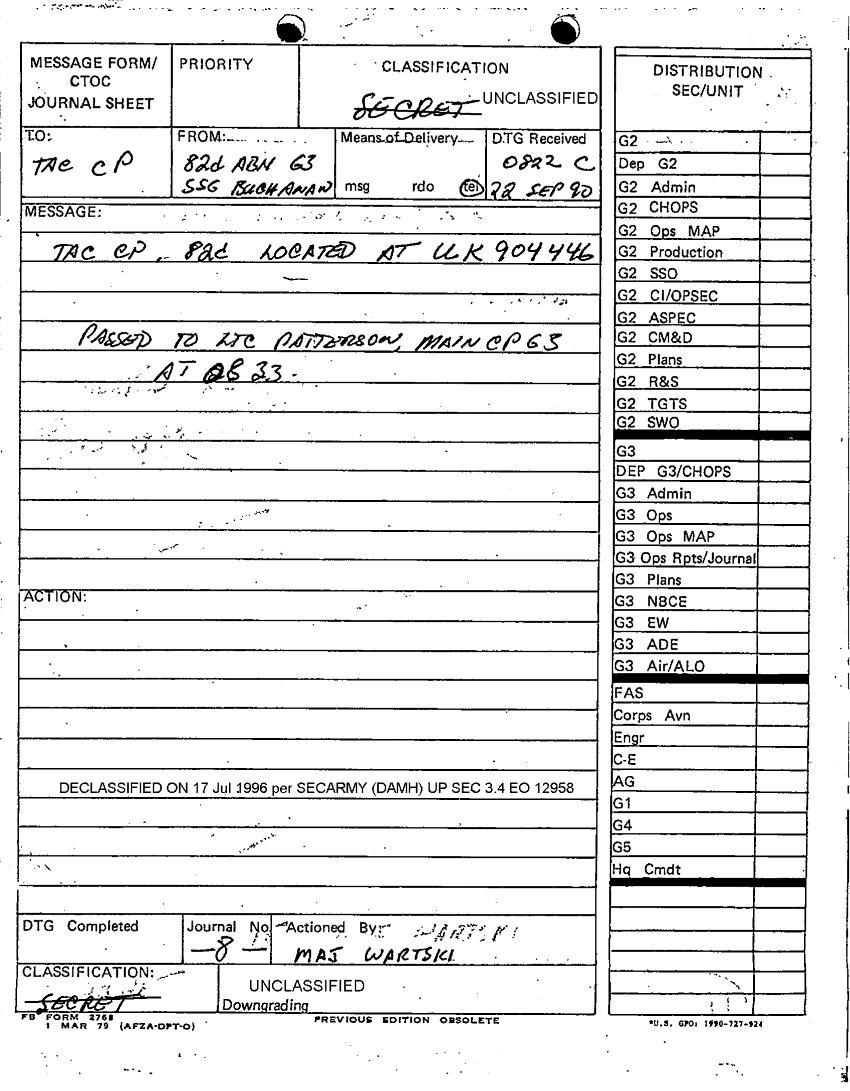 MESSAGE FORM/
CTOC
JOURNAL SHEET
PRIORITY
CLASSIFICATION
SECRET UNCLASSIFIED
TO:
TAC CP
FROM:
82d ABN G3
SSG BUCHANAN
Means of Delivery
msg rdo tel
DTG Received
0822 C
22 SEP 90
MESSAGE:
TAC CP, 82d LOCATED AT UK 904446
PASSED TO LTC PATTERSON, MAIN CP G3
AT 0833.
ACTION:
DECLASSIFIED ON 17 Jul 1996 per SECARMY (DAMH) UP SEC 3.4 EO 12958
DTG Completed
Journal No
8
Actioned By:
WARTSKI
MAJ WARTSKI
CLASSIFICATION:
SECRET
UNCLASSIFIED
Downgrading
FB FORM 2768
1 MAR 79 (AFZA-DPT-O)
PREVIOUS EDITION OBSOLETE
DISTRIBUTION
SEC/UNIT
G2
Dep G2
G2 Admin
G2 CHOPS
G2 Ops MAP
G2 Production
G2 SSO
G2 CI/OPSEC
G2 ASPEC
G2 CM&D
G2 Plans
G2 R&S
G2 TGTS
G2 SWO
G3
DEP G3/CHOPS
G3 Admin
G3 Ops
G3 Ops MAP
G3 Ops Rpts/Journal
G3 Plans
G3 NBCE
G3 EW
G3 ADE
G3 Air/ALO
FAS
Corps Avn
Engr
C-E
AG
G1
G4
G5
Hq Cmdt
*U.S. GPO: 1990-727-924